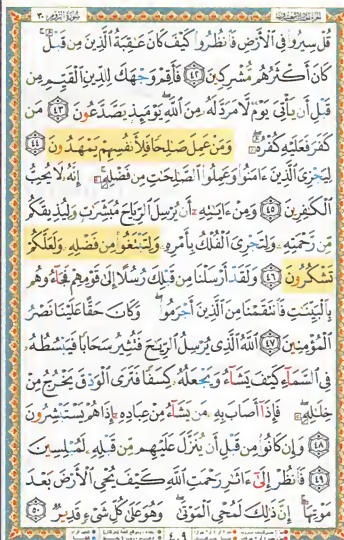 سورة الروم ٣٠
قُلْ سِيرُوا۟ فِى ٱلْأَرْضِ فَٱنظُرُوا۟ كَيْفَ كَانَ عَـٰقِبَةُ ٱلَّذِينَ مِن قَبْلُ ۚ
كَانَ أَكْثَرُهُم مُّشْرِكِينَ ٤٢ فَأَقِمْ وَجْهَكَ لِلدِّينِ ٱلْقَيِّمِ مِن
قَبْلِ أَن يَأْتِىَ يَوْمٌ لَّا مَرَدَّ لَهُۥ مِنَ ٱللَّهِ ۖ يَوْمَئِذٍ يَصَّدَّعُونَ ٤٣ مَن
كَفَرَ فَعَلَيْهِ كُفْرُهُۥ ۖ وَمَنْ عَمِلَ صَـٰلِحًا فَلِأَنفُسِهِمْ يَمْهَدُونَ ٤٤
لِيَجْزِىَ ٱلَّذِينَ ءَامَنُوا۟ وَعَمِلُوا۟ ٱلصَّـٰلِحَـٰتِ مِن فَضْلِهِۦٓ ۚ إِنَّهُۥ لَا يُحِبُّ
ٱلْكَـٰفِرِينَ ٤٥ وَمِنْ ءَايَـٰتِهِۦٓ أَن يُرْسِلَ ٱلرِّيَاحَ مُبَشِّرَٰتٍ وَلِيُذِيقَكُم
مِّن رَّحْمَتِهِۦ وَلِتَجْرِىَ ٱلْفُلْكُ بِأَمْرِهِۦ وَلِتَبْتَغُوا۟ مِن فَضْلِهِۦ وَلَعَلَّكُمْ
تَشْكُرُونَ ٤٦ وَلَقَدْ أَرْسَلْنَا مِن قَبْلِكَ رُسُلًا إِلَىٰ قَوْمِهِمْ فَجَآءُوهُم
بِٱلْبَيِّنَـٰتِ فَٱنتَقَمْنَا مِنَ ٱلَّذِينَ أَجْرَمُوا۟ ۖ وَكَانَ حَقًّا عَلَيْنَا نَصْرُ
ٱلْمُؤْمِنِينَ ٤٧ ٱللَّهُ ٱلَّذِى يُرْسِلُ ٱلرِّيَـٰحَ فَتُثِيرُ سَحَابًا فَيَبْسُطُهُۥ
فِى ٱلسَّمَآءِ كَيْفَ يَشَآءُ وَيَجْعَلُهُۥ كِسَفًا فَتَرَى ٱلْوَدْقَ يَخْرُجُ مِنْ
خِلَـٰلِهِۦ ۖ فَإِذَآ أَصَابَ بِهِۦ مَن يَشَآءُ مِنْ عِبَادِهِۦٓ إِذَا هُمْ يَسْتَبْشِرُونَ
٤٨ وَإِن كَانُوا۟ مِن قَبْلِ أَن يُنَزَّلَ عَلَيْهِم مِّن قَبْلِهِۦ لَمُبْلِسِينَ
٤٩ فَٱنظُرْ إِلَىٰٓ ءَاثَـٰرِ رَحْمَتِ ٱللَّهِ كَيْفَ يُحْىِ ٱلْأَرْضَ بَعْدَ
مَوْتِهَآ ۚ إِنَّ ذَٰلِكَ لَمُحْىِ ٱلْمَوْتَىٰ ۖ وَهُوَ عَلَىٰ كُلِّ شَىْءٍ قَدِيرٌ ٥٠
٤٠٩